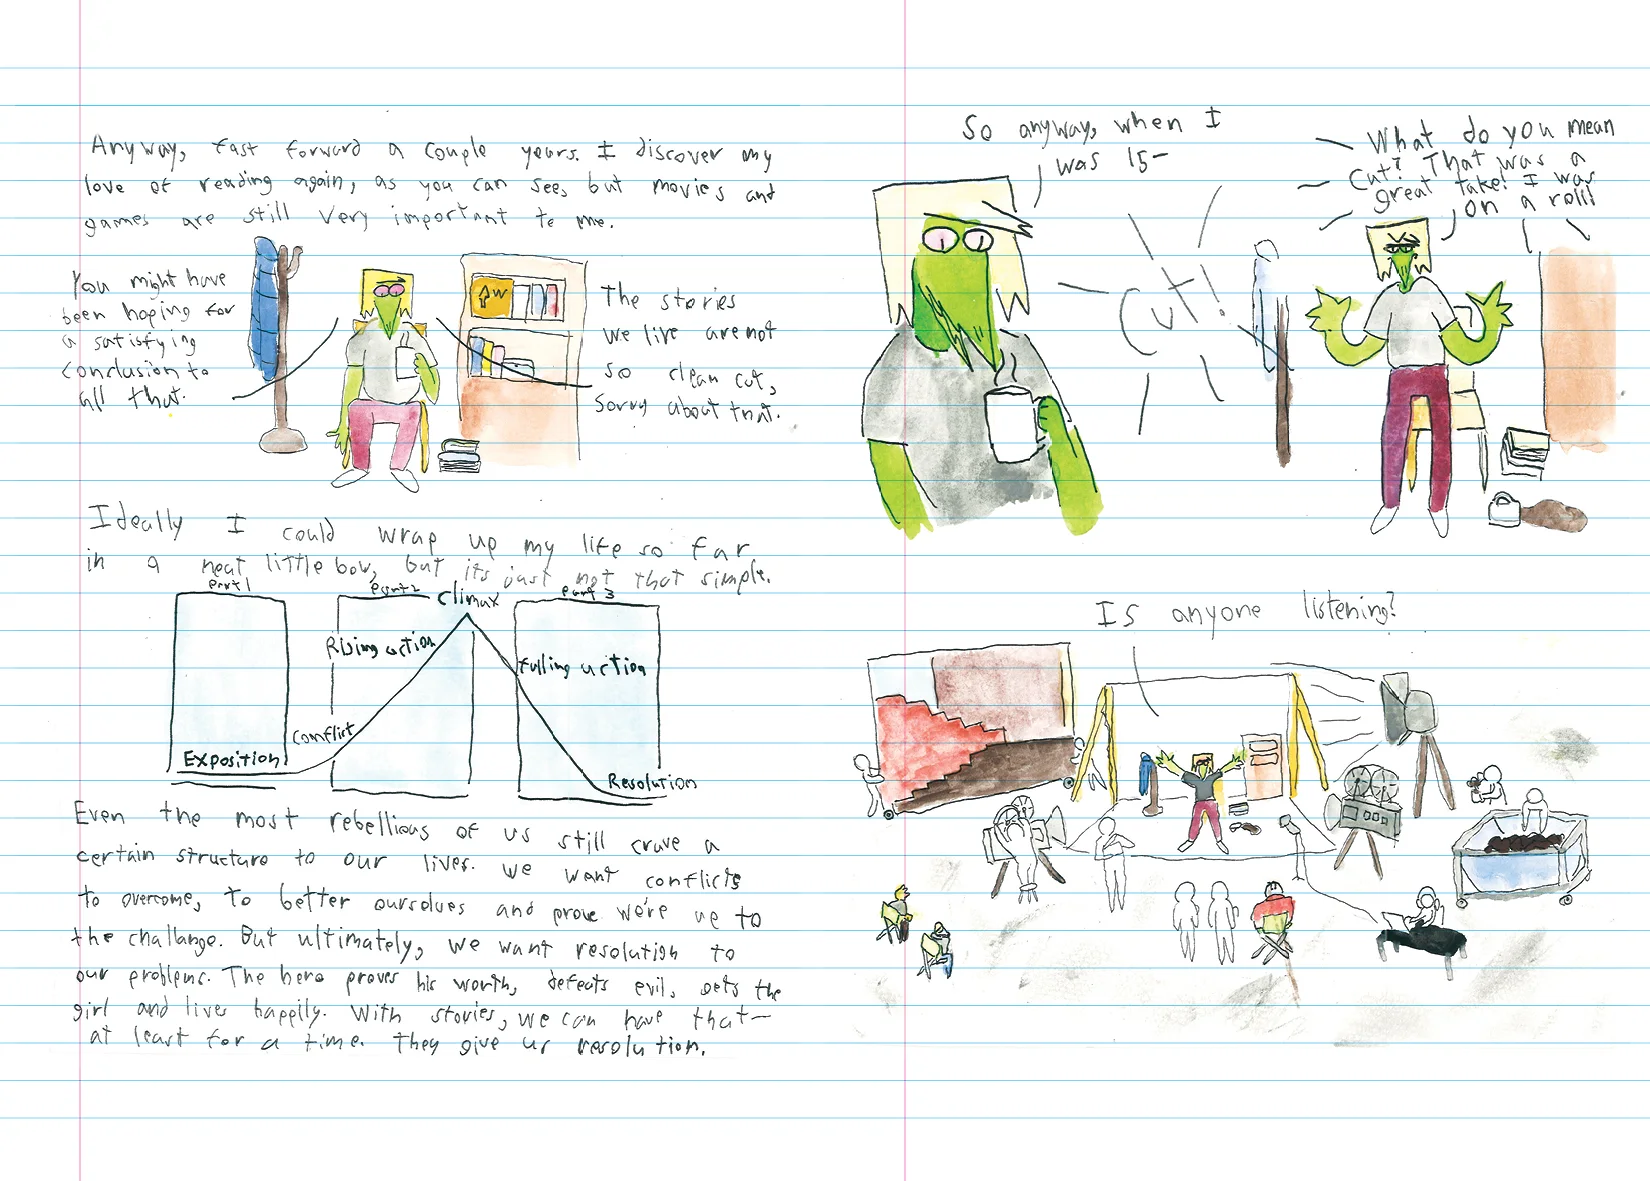 Anyway, fast forward a couple years. I discover my
love of reading again, as you can see, but movies and
games are still very important to me.
You might have
been hoping for
a satisfying
conclusion to
all that.
The stories
we live are not
so clean cut,
sorry about that.
Ideally I could wrap up my life so far
in a neat little bow, but its just not that simple.
part 1
part 2
Climax
part 3
Rising action
falling action
Conflict
Exposition
Resolution
Even the most rebellious of us still crave a
certain structure to our lives. We want conflicts
to overcome, to better ourselves and prove we're up to
the challenge. But ultimately, we want resolution to
our problems. The hero proves his worth, defeats evil, gets the
girl and lives happily. With stories, we can have that—
at least for a time. They give us resolution.
So anyway, when I
was 15-
Cut!
What do you mean
Cut? That was a
great take! I was
on a roll!
Is anyone listening?